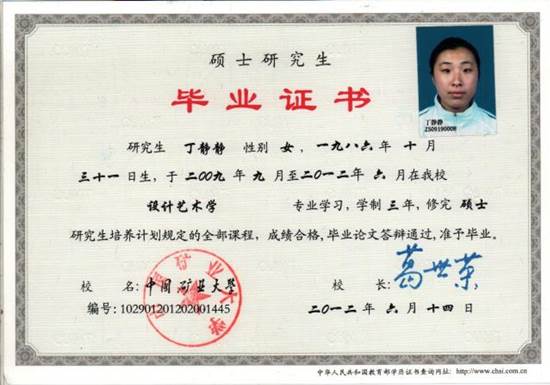 硕士研究生
毕业证书
丁静静
ZS09190008
研究生 丁静静 性别 女，一九八六年 十 月
三十一日生，于 二00九 年 九 月至二0一二年 六 月在我校
设计艺术学 专业学习，学制 三年，修完 硕士
研究生培养计划规定的全部课程，成绩合格，毕业论文答辩通过，准予毕业。
校 名：中国矿业大学 校 长：葛世荣
编号：102901201202001445 二0一二年 六 月 十四 日
中国矿业大学
中华人民共和国教育部学历证书查询网址：http://www.chsi.com.cn